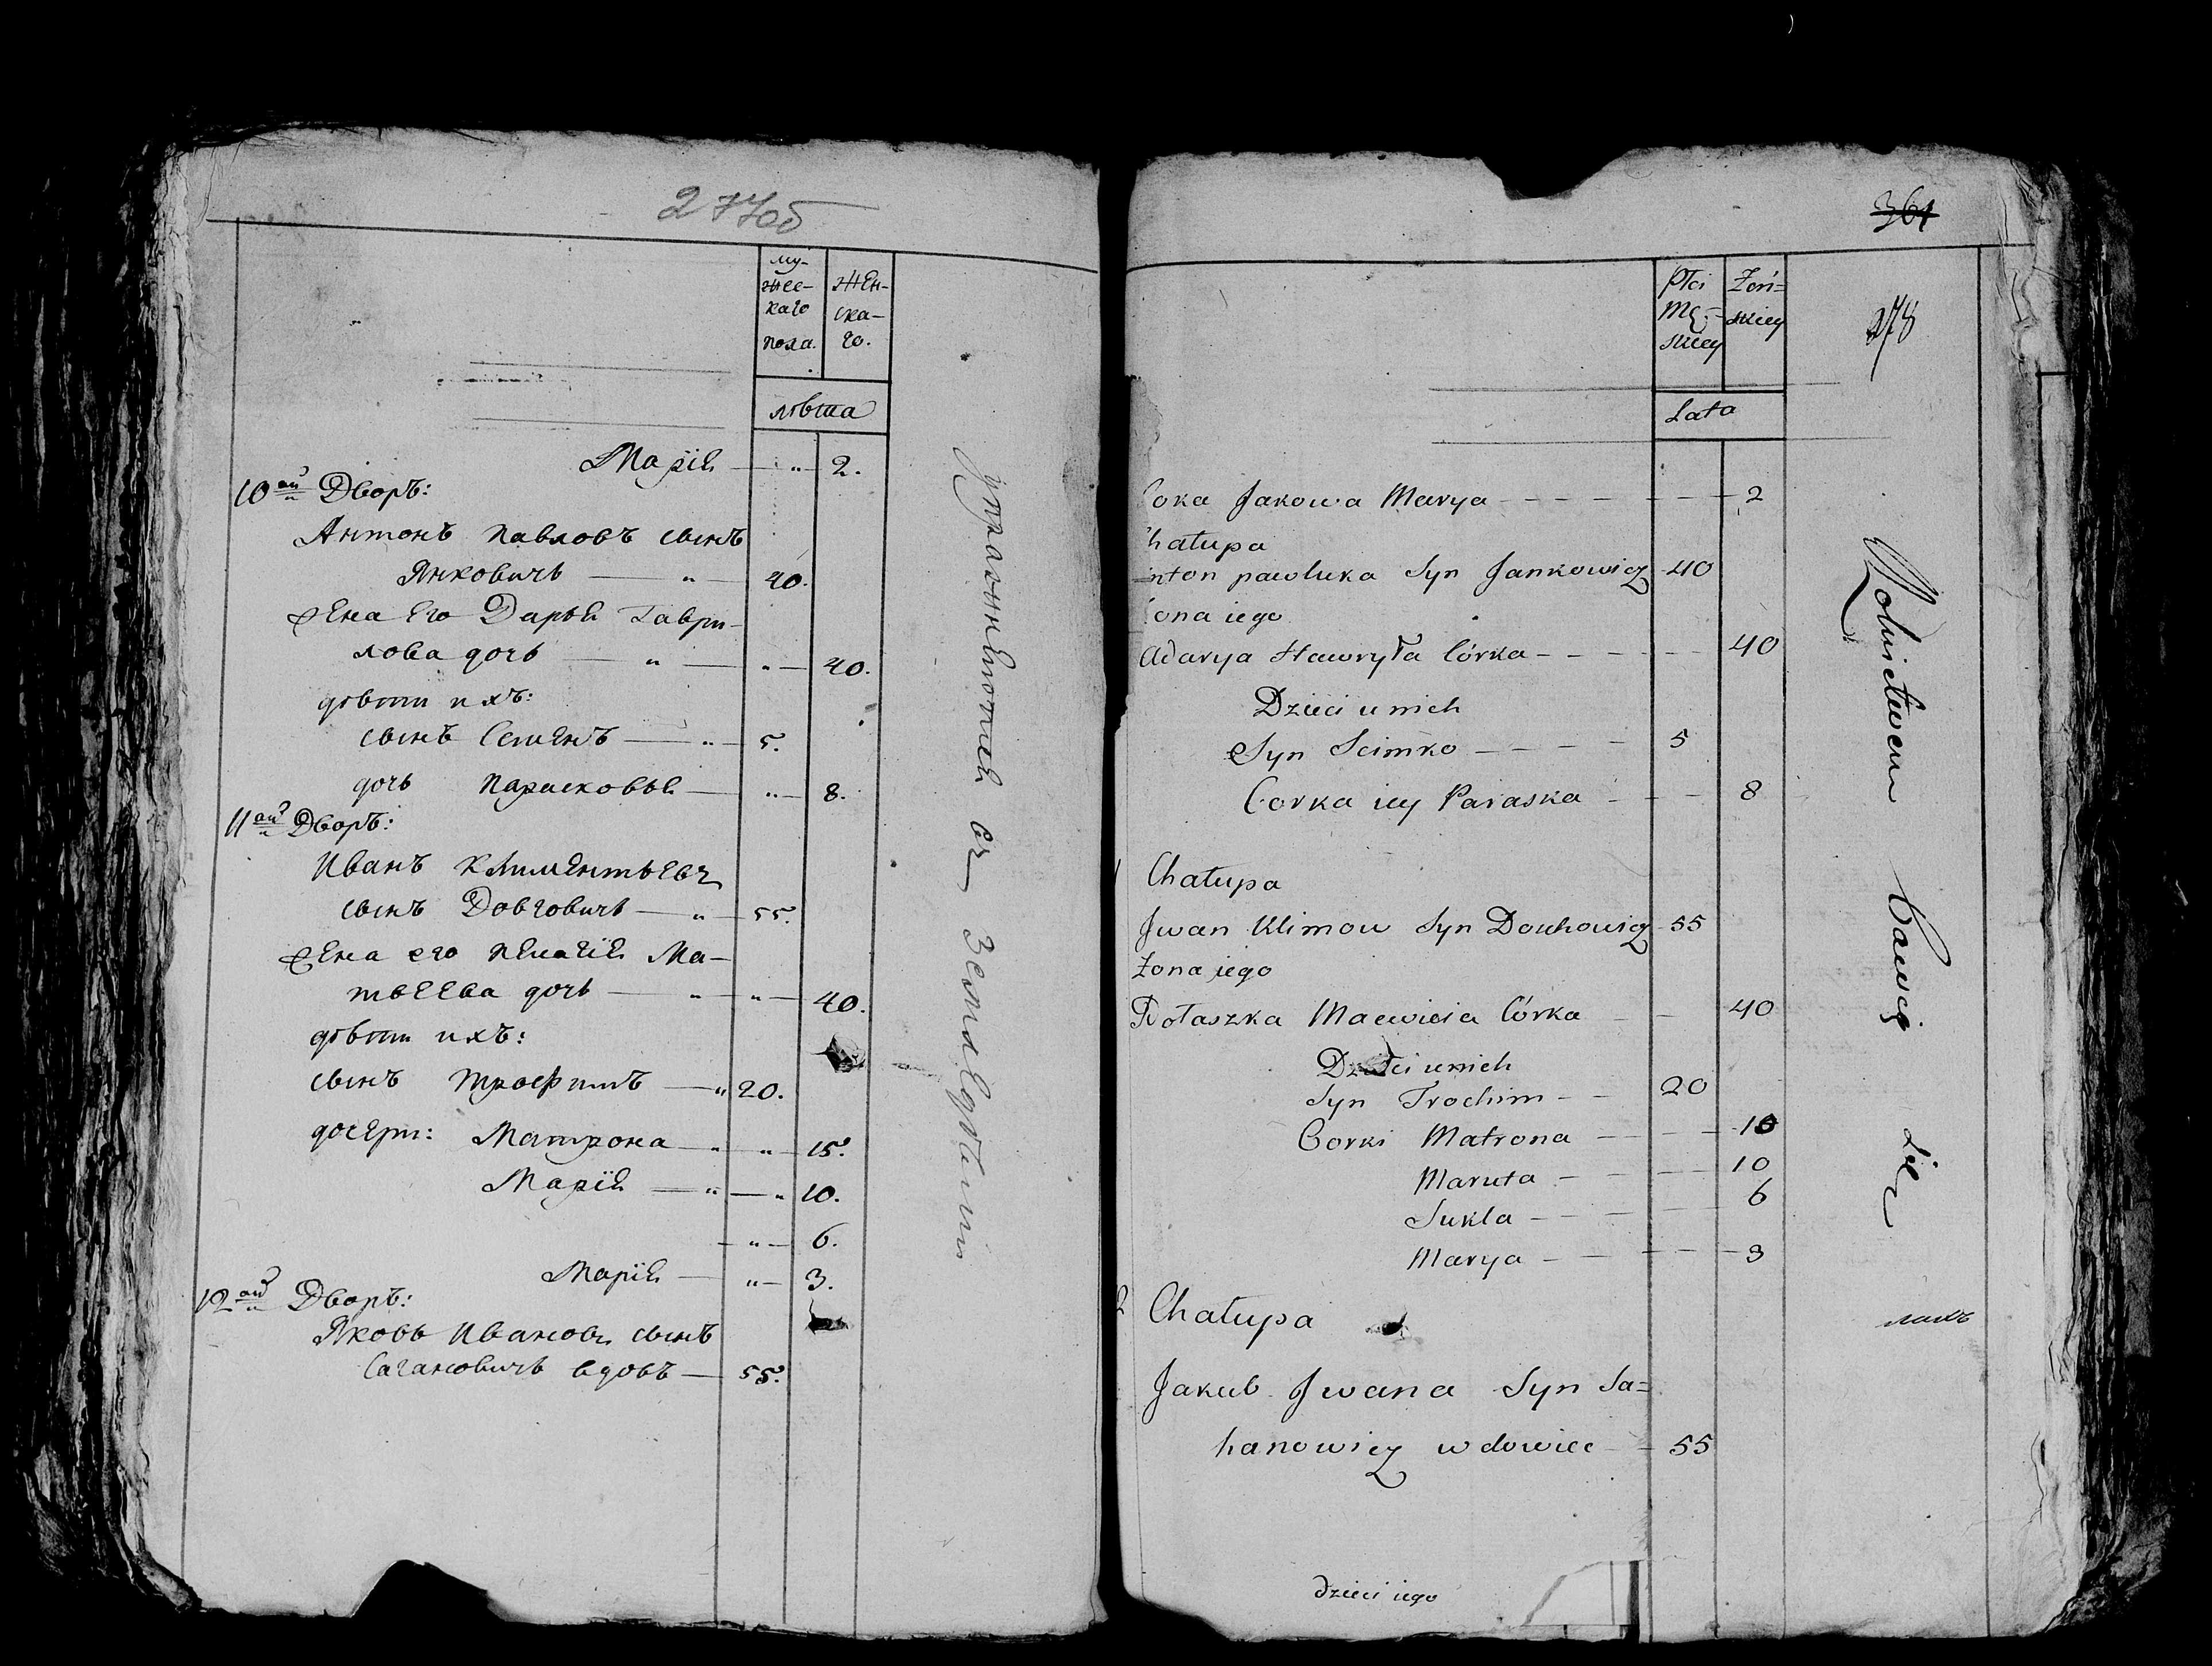 277об
му-
жес-
каго
пола.
жен-
ска-
го.
лѣта
Марія — " — 2.
10ый Дворъ:
Антонъ Павловъ сынъ
Янковичъ — " — 40.
жена его Дарья Гаври-
лова дочь — " — " — 40.
дѣти ихъ:
сынъ Семенъ — " — 5.
дочь Парасковья — " — 8.
11ый Дворъ:
Иванъ Климентьевъ
сынъ Довговичъ — " — 55.
жена его Пелагія Ма-
твеева дочь — " — " — 40.
дѣти ихъ:
сынъ Трофимъ — " 20.
дочери: Матрона — " — " — 15.
Марія — " — " 10.
— " — 6.
Марія — " — 3.
12ый Дворъ:
Яковъ Ивановъ сынъ
Сагановичъ вдовъ — 55.
упражняются въ Земледѣліи
361
278
Płci
Mę-
skiey
Żeń=
skiey
Lata
Corka Jakowa Marya - - - - - - 2
Chałupa
Anton pawluka Syn Jankowicz 40
Żona iego
Adarya Hawryła Córka - - - - - 40
Dzieci u nich
Syn Scimko - - - - 5
Corka iey Paraska - - - 8
Chałupa
Jwan Klimow Syn Douhowicz 55
Żona jego
Połaszka Macwieia Córka - - 40
Dzieci unich
Syn Trochim - - 20
Corki Matrona - - - - 10
Maruta - - - - 10
Sukla - - - - - 6
Marya - - - - - 3
2 Chałupa
Jakub Jwana Syn Sa=
hanowicz wdowiec - - 55
dzieci iego
Rolnictwem bawią się